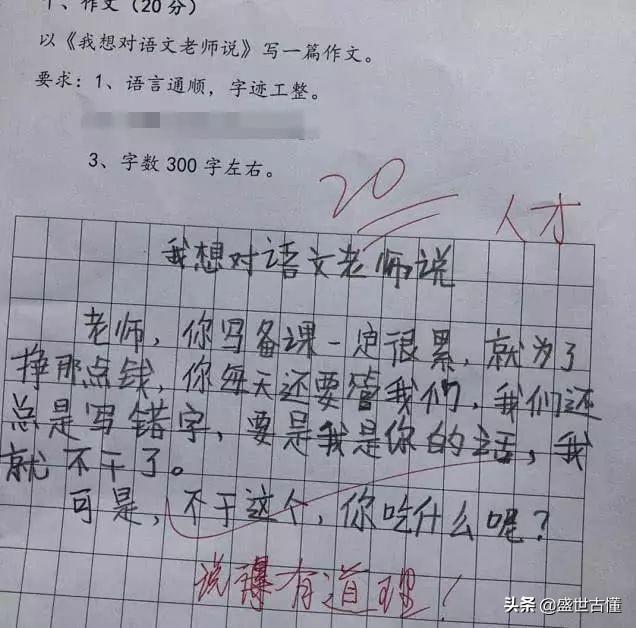 十、作文（20分）
以《我想对语文老师说》写一篇作文。
要求：1、语言通顺，字迹工整。
3、字数300字左右。
20
人才
我想对语文老师说
老师，你写备课一定很累，就为了
挣那点钱，你每天还要管我们，我们还
总是写错字，要是我是你的话，我
就不干了。
可是，不干这个，你吃什么呢？
说得有道理！
头条 @盛世古懂